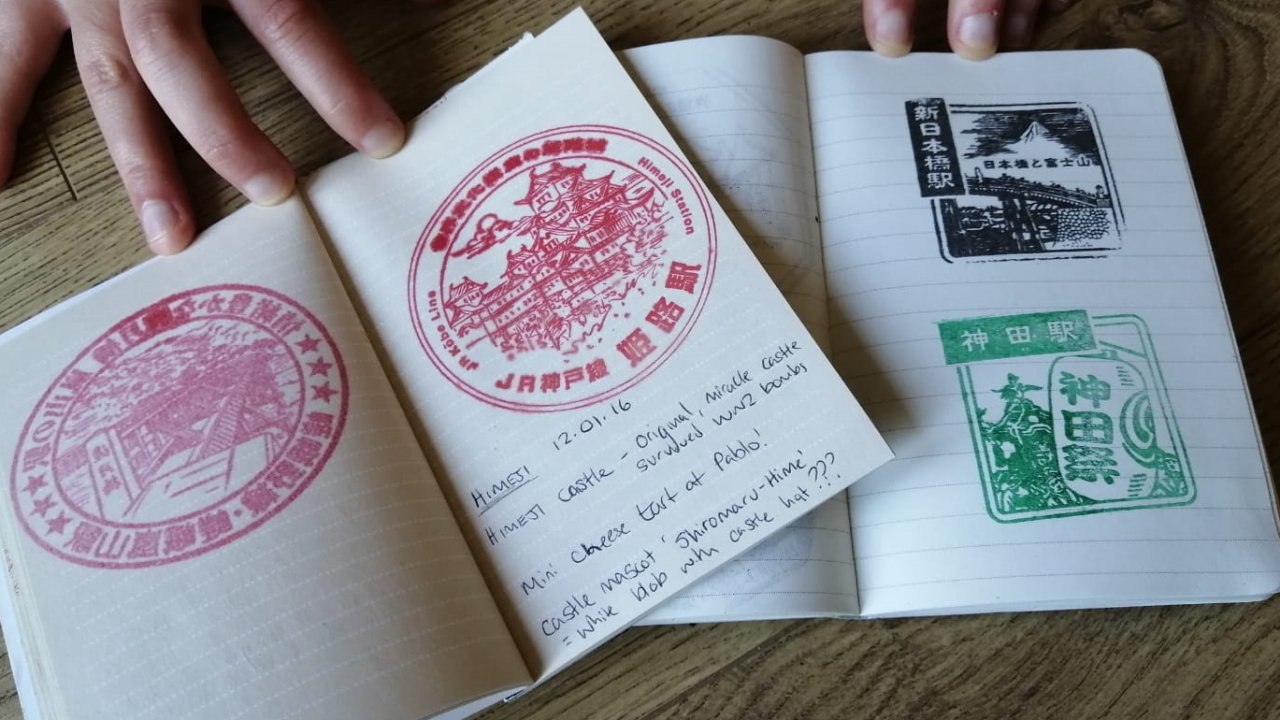 Himeji Station
JR Kobe Line
JR神戸線 姫路駅
12.01.16
HIMEJI
HIMEJI castle - original, miracle castle
survived WW2 bombs
Mini cheese tart at Pablo!
castle mascot 'Shiromaru-Hime'
= white blob with castle hat ???
新日本橋駅
日本橋と富士山
神田駅
神田祭